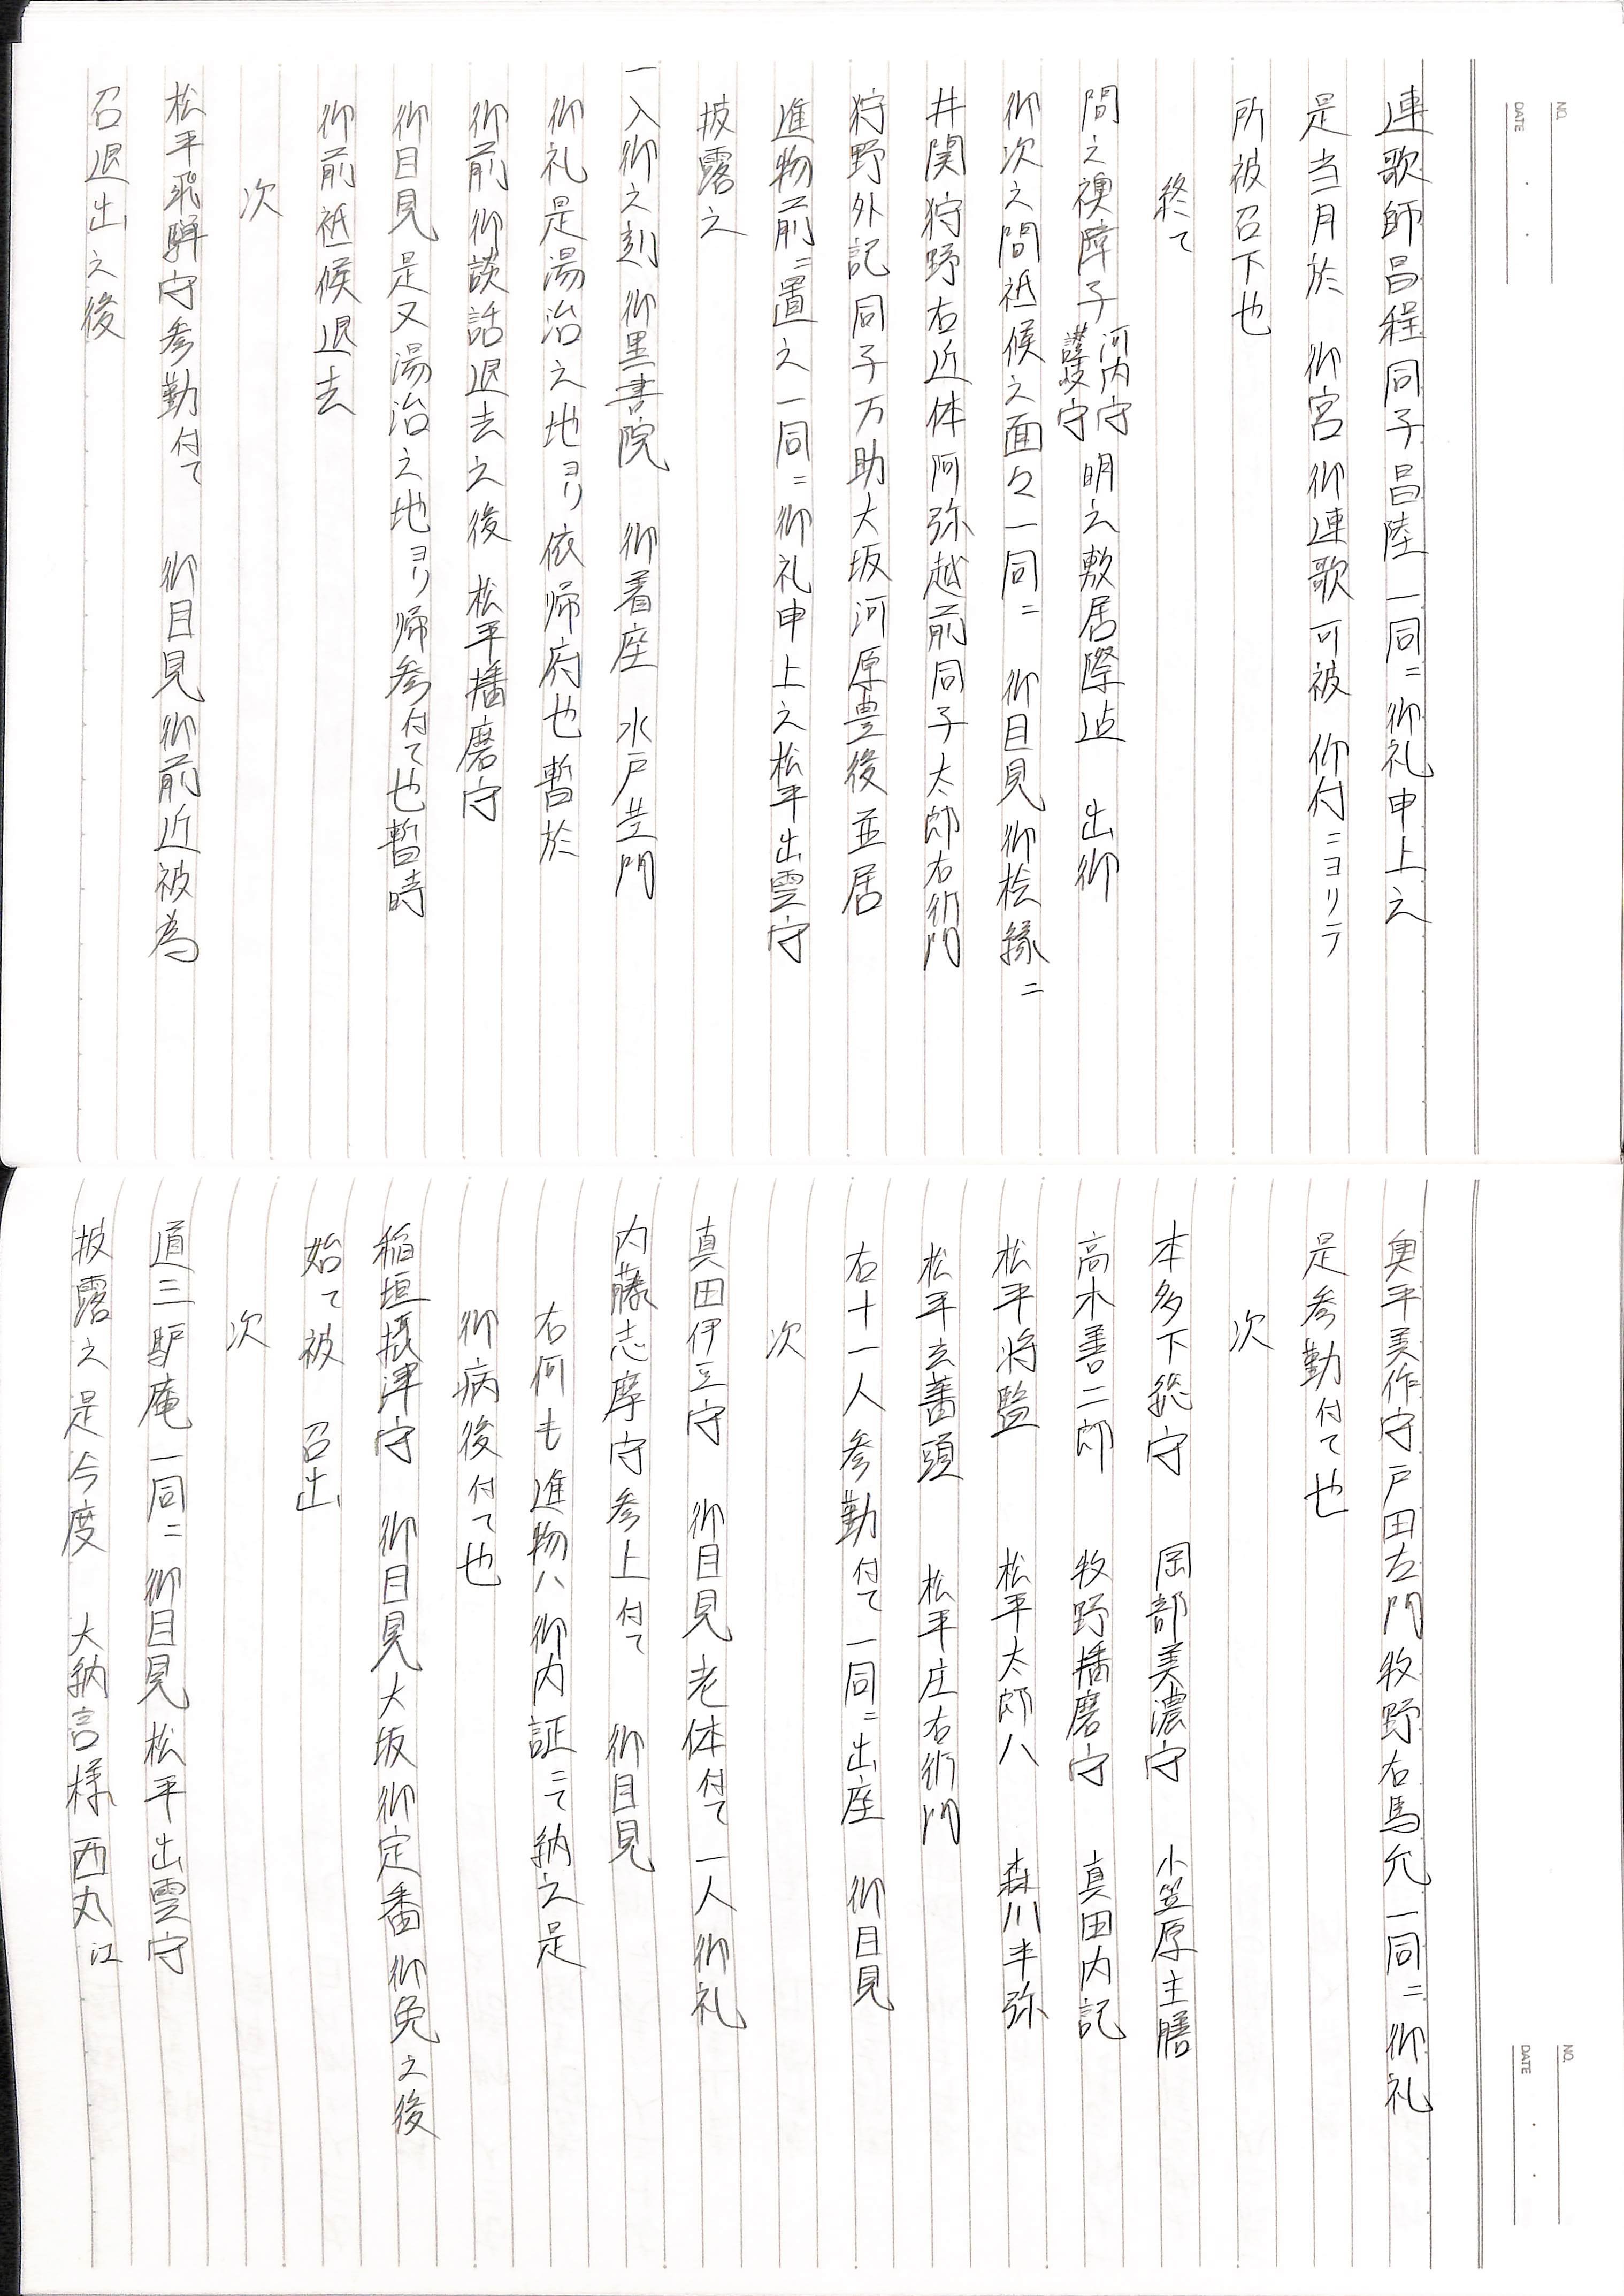 NO.
DATE
連歌師昌程同子昌陸一同ニ御礼申上之
是当月於 御宮御連歌可被 仰付ニヨリテ
所被召下也
終て
間之襖障子河内守讃岐守明之敷居際迠 出御
御次之間祗候之面々一同ニ 御目見御桧縁ニ
井関狩野右近体阿弥越前同子太郎右衛門
狩野外記同子万助大坂河原豊後並居
進物前ニ置之一同ニ御礼申上之松平出雲守
披露之
一入御之刻御黒書院 御着座 水戸黄門
御礼是湯治之地ヨリ依帰府也暫於
御前御談話退去之後 松平播磨守
御目見是又湯治之地ヨリ帰参付て也暫時
御前祗候退去
次
松平飛騨守参勤付て 御目見御前近被為
召退出之後
NO.
DATE
奥平美作守戸田左門牧野右馬允一同ニ御礼
是参勤付て也
次
本多下総守 岡部美濃守 小笠原主膳
高木善二郎 牧野播磨守 真田内記
松平将監 松平太郎八 森川半弥
松平玄蕃頭 松平庄右衛門
右十一人参勤付て一同ニ出座 御目見
次
真田伊豆守 御目見老体付て一人御礼
内藤志摩守参上付て 御目見
右何も進物ハ御内証ニて納之是
御病後付て也
稲垣摂津守 御目見大坂御定番御免之後
始て被 召出
次
道三驢庵一同ニ御目見松平出雲守
披露之是今度 大納言様西丸江